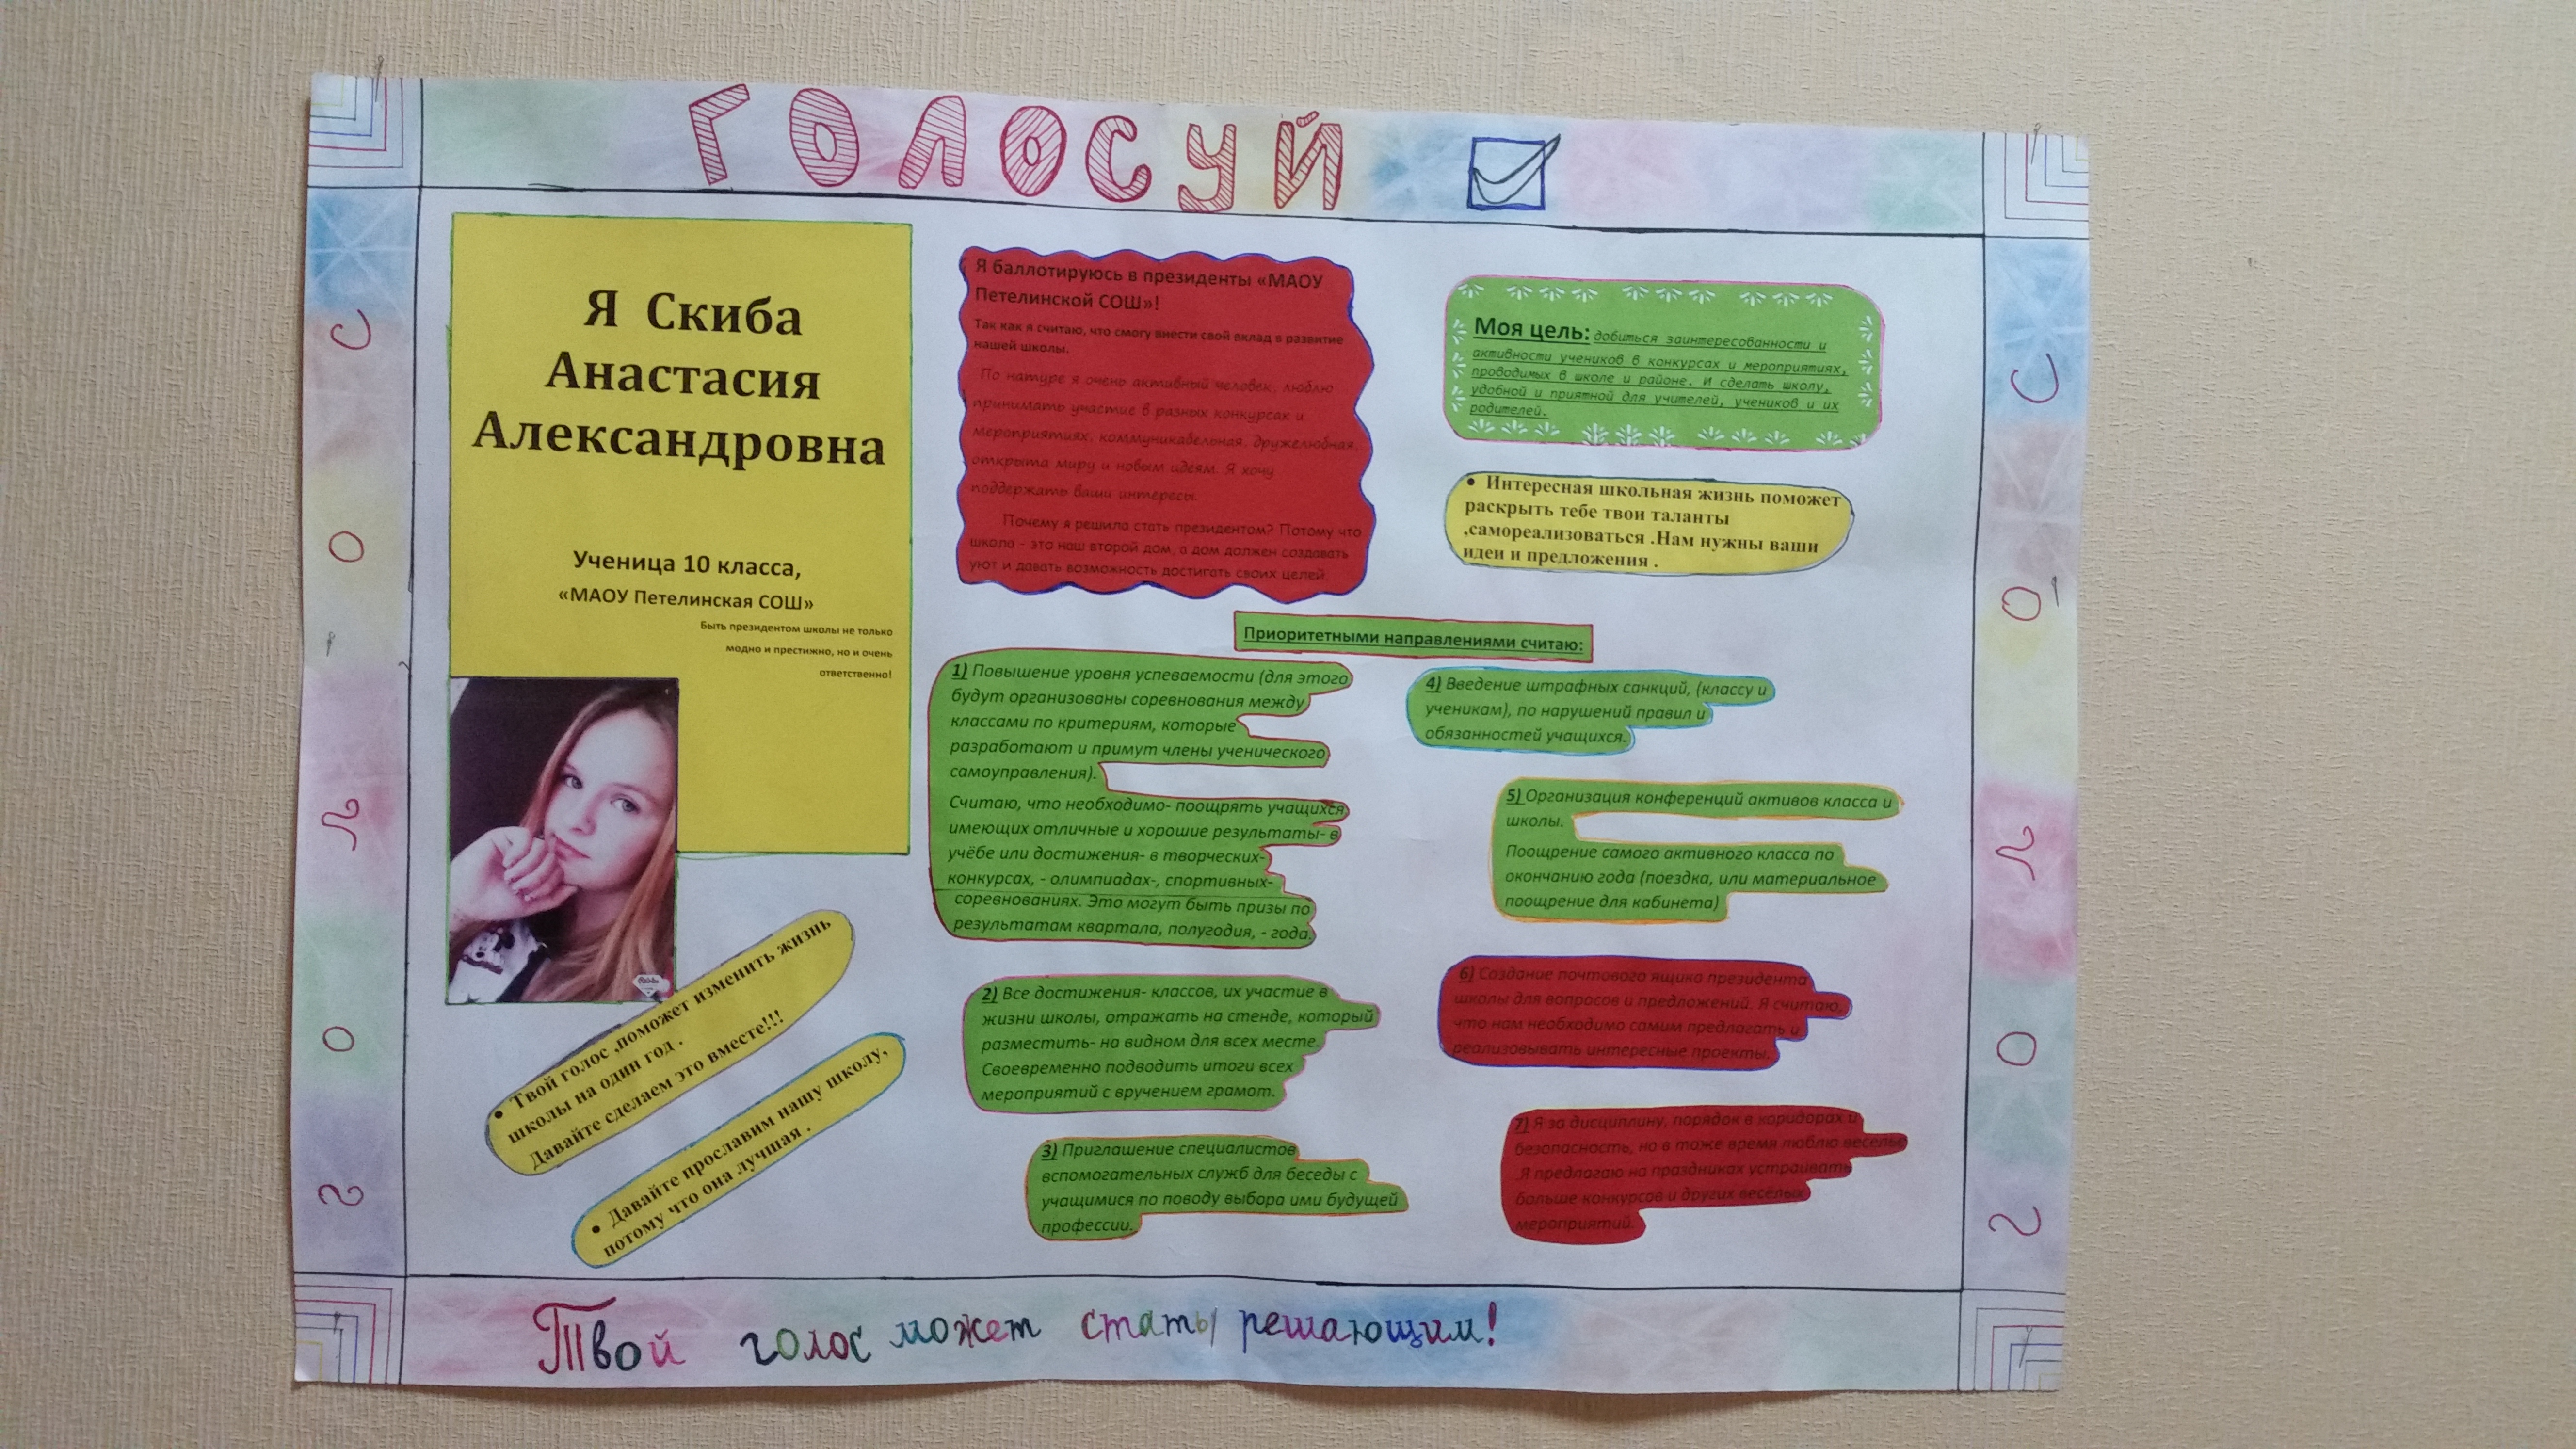 ГОЛОСУЙ
Я Скиба
Анастасия
Александровна
Ученица 10 класса,
«МАОУ Петелинская СОШ»
Быть президентом школы не только
модно и престижно, но и очень
ответственно!
• Твой голос ,поможет изменить жизнь
школы на один год .
Давайте сделаем это вместе!!!
• Давайте прославим нашу школу,
потому что она лучшая .
Я баллотируюсь в президенты «МАОУ
Петелинской СОШ»!
Так как я считаю, что смогу внести свой вклад в развитие
нашей школы.
По натуре я очень активный человек, люблю
принимать участие в разных конкурсах и
мероприятиях, коммуникабельная, дружелюбная,
открыта миру и новым идеям. Я хочу
поддержать ваши интересы.
Почему я решила стать президентом? Потому что
школа - это наш второй дом, а дом должен создавать
уют и давать возможность достигать своих целей.
Моя цель: добиться заинтересованности и
активности учеников в конкурсах и мероприятиях,
проводимых в школе и районе. И сделать школу,
удобной и приятной для учителей, учеников и их
родителей.
• Интересная школьная жизнь поможет
раскрыть тебе твои таланты
,самореализоваться .Нам нужны ваши
идеи и предложения .
Приоритетными направлениями считаю:
1) Повышение уровня успеваемости (для этого
будут организованы соревнования между
классами по критериям, которые
разработают и примут члены ученического
самоуправления).
Считаю, что необходимо- поощрять учащихся
имеющих отличные и хорошие результаты- в
учёбе или достижения- в творческих-
конкурсах, - олимпиадах-, спортивных-
соревнованиях. Это могут быть призы по
результатам квартала, полугодия, - года.
2) Все достижения- классов, их участие в
жизни школы, отражать на стенде, который
разместить- на видном для всех месте.
Своевременно подводить итоги всех
мероприятий с вручением грамот.
3) Приглашение специалистов
вспомогательных служб для беседы с
учащимися по поводу выбора ими будущей
профессии.
4) Введение штрафных санкций, (классу и
ученикам), по нарушений правил и
обязанностей учащихся.
5) Организация конференций активов класса и
школы.
Поощрение самого активного класса по
окончанию года (поездка, или материальное
поощрение для кабинета)
6) Создание почтового ящика президента
школы для вопросов и предложений. Я считаю,
что нам необходимо самим предлагать и
реализовывать интересные проекты.
7) Я за дисциплину, порядок в коридорах и
безопасность, но в тоже время люблю веселье
.Я предлагаю на праздниках устраивать
больше конкурсов и других весёлых
мероприятий.
голос
голос
Твой голос может стать решающим!